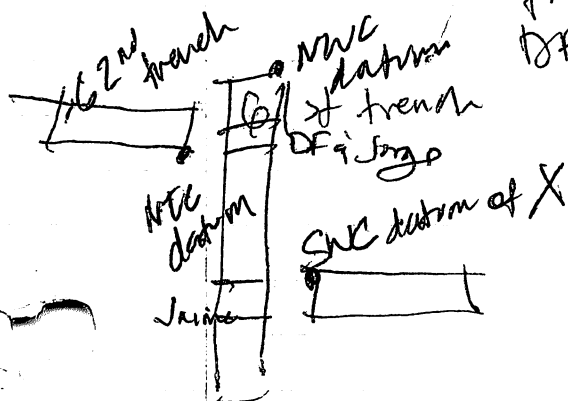 2nd trench
NWC
datum
of trench
DF & Jorge
NEC
datum
SWC datum of X